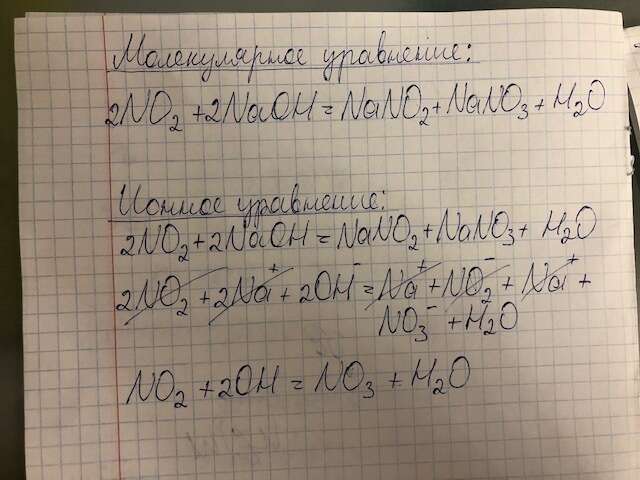 Молекулярное уравнение:
2NO₂ + 2NaOH = NaNO₂ + NaNO₃ + H₂O
Ионное уравнение:
2NO₂ + 2NaOH = NaNO₂ + NaNO₃ + H₂O
2NO₂ + 2Na⁺ + 2OH⁻ = Na⁺ + NO₂⁻ + Na⁺ +
NO₃⁻ + H₂O
NO₂ + 2OH = NO₃ + H₂O